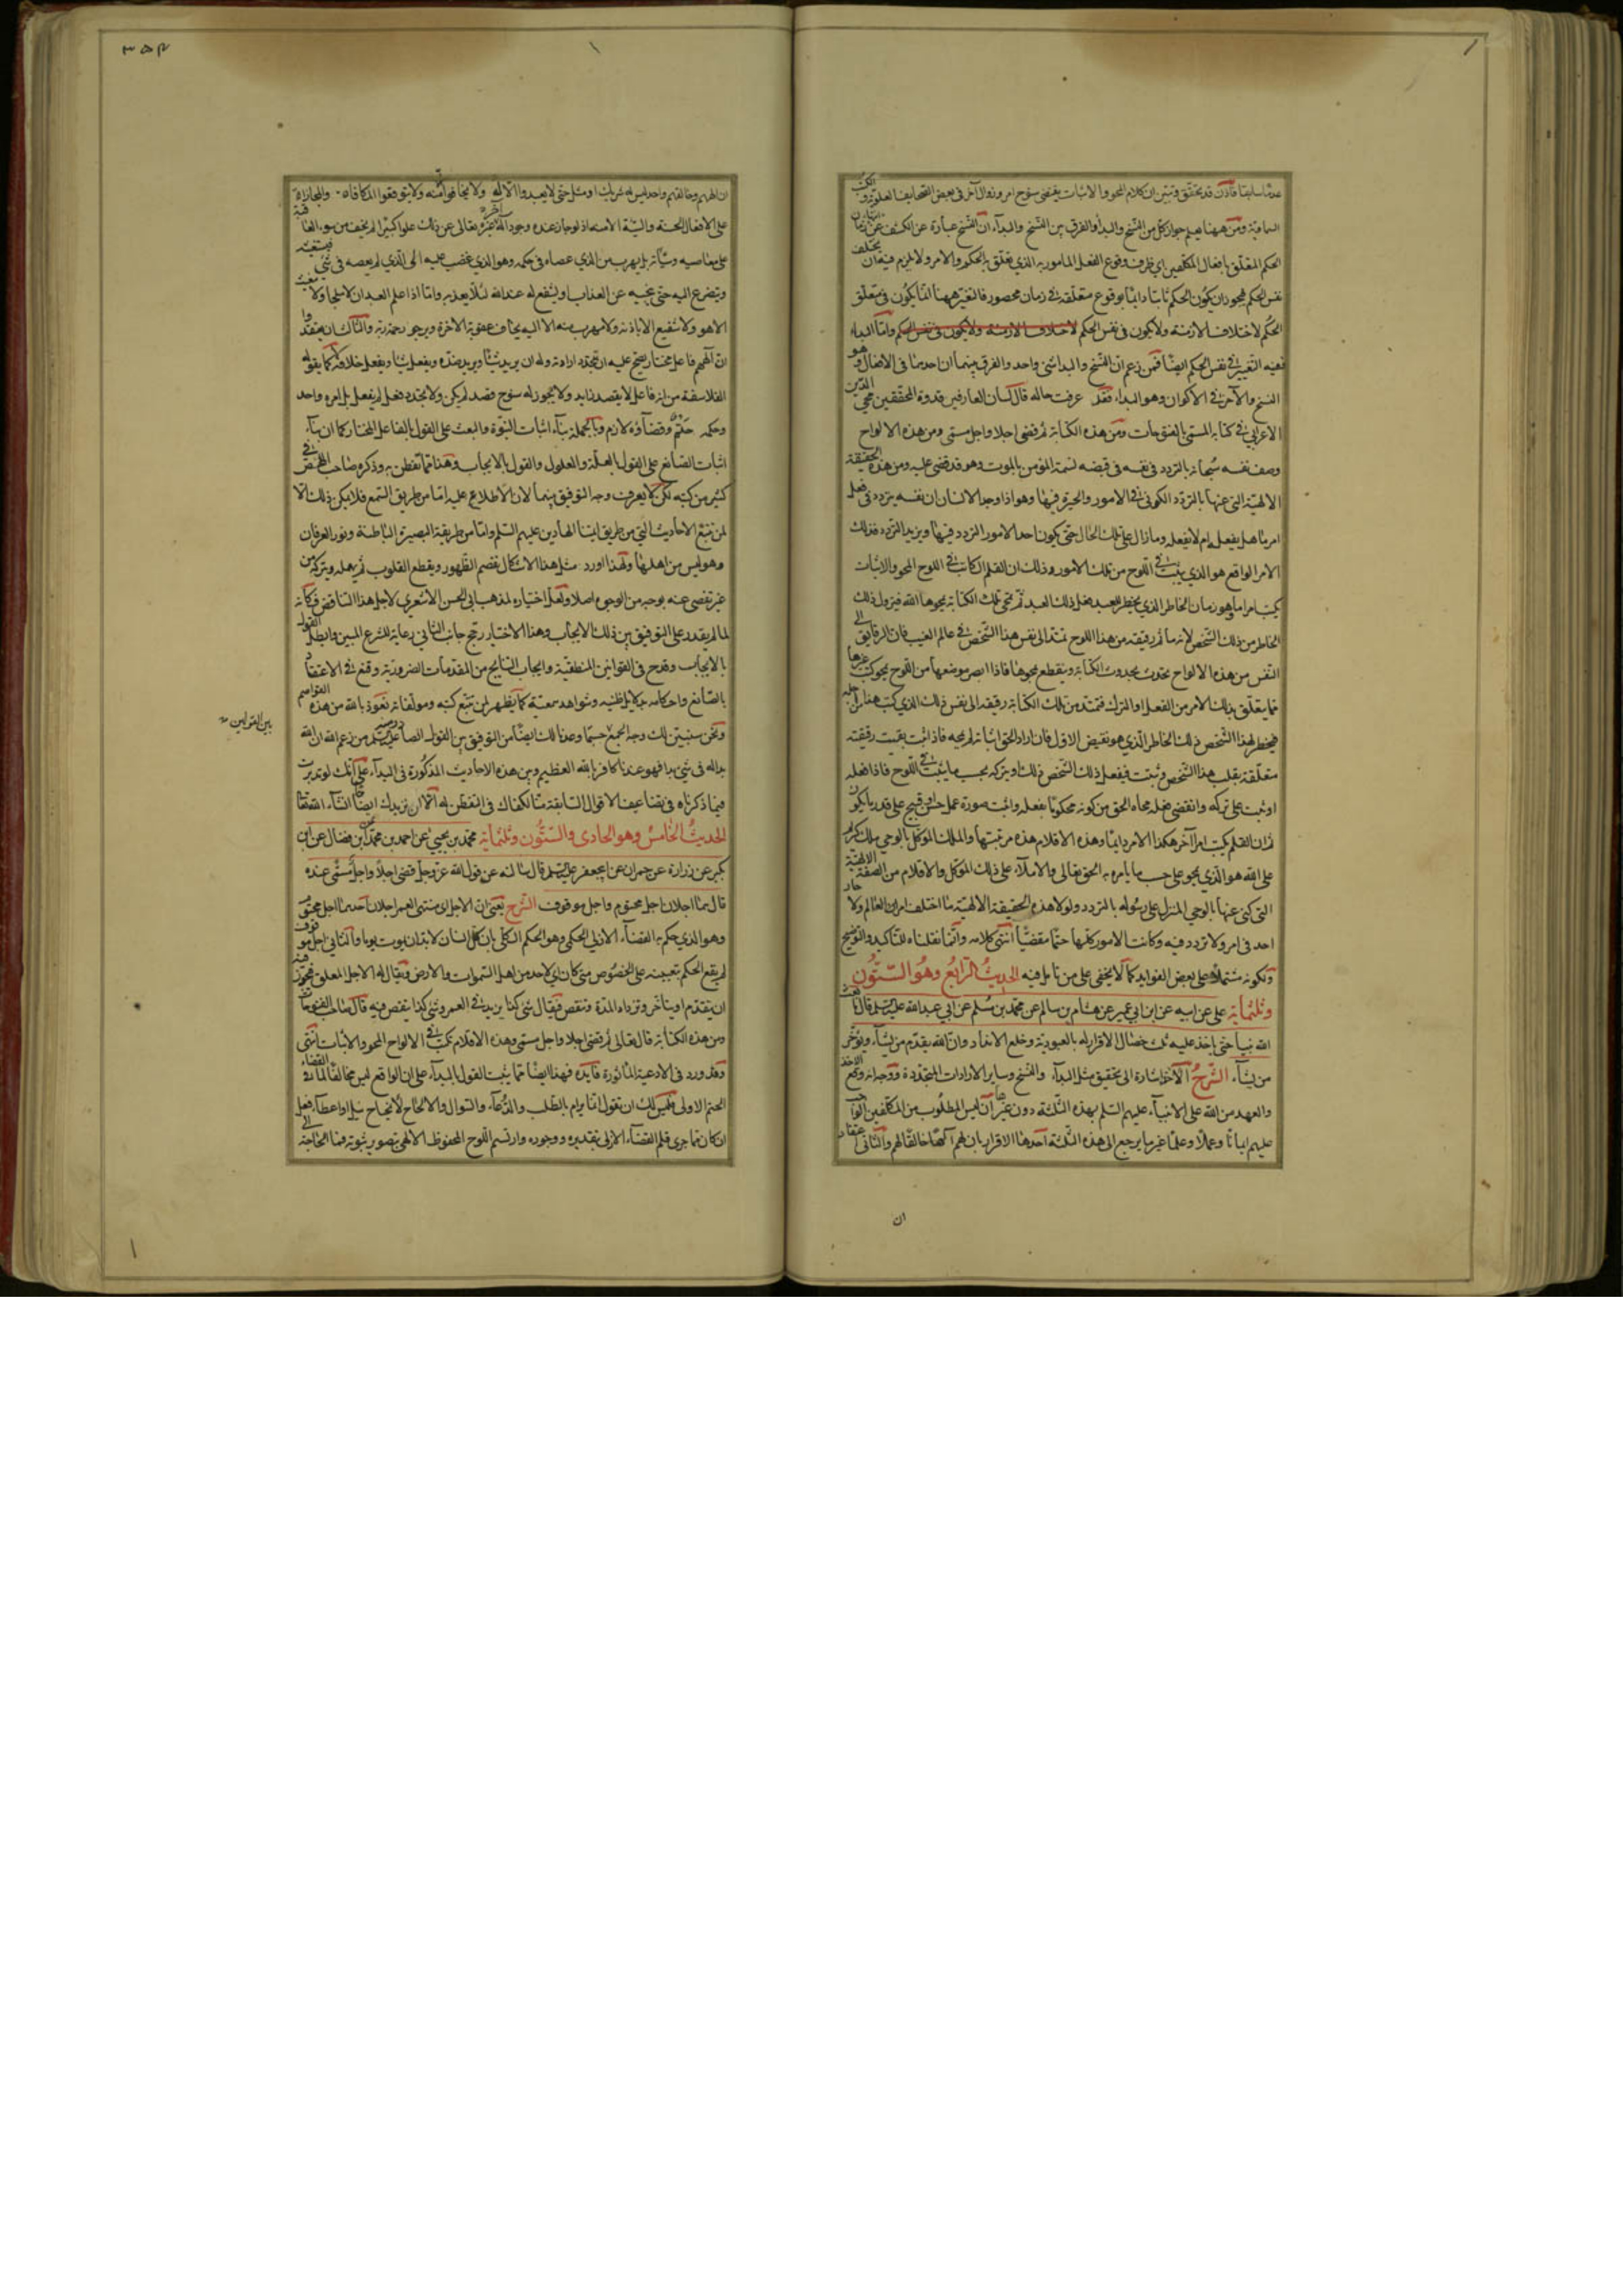 عدّنا سابقا فاذن قد تحقّق وتبيّن ان كلام المحو والاثبات يقتضى سنوح امر وزوال آخر فى بعض الصحايف العلوية والكتب
السماوية ومن ههنا يعلم جواز كل من النسخ والبدأ والفرق بين النسخ والبداء ان النسخ عبارة عن الكشف عن انتهاء زمان
الحكم المتعلق بافعال المكلفين اي ظرف وقوع الفعل المأمور به الذي تعلق به الحكم والامر ولا يلزم فيه ان يختلف
نفس الحكم فيجوز ان يكون الحكم ثابتا دائما بوقوع متعلقه فى زمان محصور فالتغير ههنا انما يكون فى متعلق
الحكم لاختلاف الازمنة ولا يكون فى نفس الحكم لاختلاف الازمنة ولا يكون فى نفس الحكم واما البداء
ففيه التغيير فى نفس الحكم ايضا فمن زعم ان النسخ والبدا شئ واحد والفرق بينهما ان احدهما فى الافعال وهو
النسخ والآخر فى الاكوان وهو البداء فقد عرفت حاله قال لسان العارفين قدوة المحققين محيي الدين
الاعرابي فى كتابه المسمى بالفتوحات ومن هذه الكتابة ثم قضى اجلا واجل مسمى ومن هذه الالواح
وصف نفسه سبحانه بالتردد فى نفسه فى قبضه نسمة المؤمن بالموت وهو قد قضى عليه ومن هذه الحقيقة
الالهية التى عنها بالتردد الكونى فى الامور والحيرة فيها وهو اذا وجد الانسان ان نفسه يتردد فى فعل
امر ما هل يفعله ام لا يفعله وما زال على تلك الحال حتى يكون احد الامور التردد فيها ويزيد التردد فذلك
الامر الواقع هو الذي يثبت فى اللوح من تلك الامور وذلك ان القلم الكاتب فى اللوح المحو والاثبات
يكتب امرا ما وهو زمان الخاطر الذي يخطر للعبد فعل ذلك العبد ثم تمحى تلك الكتابة يمحوها الله فيزول ذلك
الخاطر من ذلك الشخص لانه ما ثم رقيقة من هذا اللوح تمتد الى نفس هذا الشخص فى عالم الغيب فان الرقايق الى
النفس من هذه الالواح تحدث بحدوث الكتابة وينقطع بمحوها فاذا ابصر موضعها من اللوح ممحو كتب غيرها
مما يتعلق بذلك الامر من الفعل او الترك فتمتد من تلك الكتابة رقيقة الى نفس ذلك الذي كتب هذا من اجله
فيخطر لهذا الشخص ذلك الخاطر الذي هو نقيض الاول فان اراد الحق اثباته لم يمحه فاذا ثبت بقيت رقيقته
متعلقة بقلب هذا الشخص وثبتت فيفعل ذلك الشخص ذلك او يتركه بحسب ما يثبت فى اللوح فاذا فعله
او ثبت على تركه وانقضى فعله محاه الحق من كونه محكوما بفعله واثبت صورة عمل حسن او قبيح على قدر ما يكون
ثم ان القلم يكتب امرا آخر هكذا الامر دايما وهذه الاقلام هذه مرتبتها والملك الموكل بالوحي ملك كريم
على الله هو الذي يمحو على حسب ما يأمره به الحق تعالى والاملاء على ذلك الموكل والاقلام من الصفة الالهية
التى كنى عنها بالوحي المنزل على رسوله بالتردد ولولا هذه الحقيقة الالهية ما اختلف امران فى العالم ولا حار
احد فى امر ولا تردد فيه وكانت الامور كلها حتما مقضيا انتهى كلامه وانما نقلناه للتأكيد والتوضيح
ولكونه مشتملا على بعض الفوايد كما لا يخفى على من تأمل فيه الحديث الرابع وهو الستون
وثلثمأية على عن ابيه عن ابن ابي عمير عن هشام بن سالم عن محمد بن مسلم عن ابي عبد الله عليه السلم قال ما بعث
الله نبيا حتى يأخذ عليه ثلث خصال الاقرار له بالعبودية وخلع الانداد وان الله يقدم من يشاء ويؤخر
من يشاء الشرح الآخر اشارة الى تحقيق مثل البداء والنسخ وساير الارادات المتجددة ووجه انه وقع الاخذ
والعهد من الله على الانبياء عليهم السلم بهذه الثلثة دون غيرها ان ليس المطلوب من المكلفين الواجب
عليهم ايمانا وعملا وعلما غير ما يرجع الى هذه الثلثة احدها الاقرار بان لهم الها خالقا لهم والثانى اعتقاد
ان
٣٥٣
ان الههم وخالقهم واحد ليس له شريك او مثل حتى لا يعبدوا الا له ولا يخافوا منه ولا يتوقعوا المكافاة والمجازاة
على الافعال الحسنة والسيئة الا منه اذ لو جاز عنده وجود اله آخر غيره تعالى عن ذلك علوا كبيرا لم يخف من سوء العاقبة
على معاصيه وسيّآته بل يهرب من الذي عصاه فى حكمه وهو الذي غضب عليه الى الذي لم يعصه فى شئ فيستغيثه
ويتضرع اليه حتى ينجيه عن العذاب او ليشفع له عند الله لئلا يعذبه واما اذا علم العبد ان لا ملجأ ولا مغيث
الا هو ولا شفيع الا باذنه ولا مهرب منه الا اليه يخاف عقوبة الاخرة ويرجو رحمة ربه والثالث ان يعتقدوا
ان الههم فاعل مختار يصح عليه ان تتجدد ارادته وله ان يريد شيئا ويريد ضده ويفعل شيئا ويفعل خلافه لا كما يقوله
الفلاسفة من انه فاعل لا يقصد زايد ولا يجوز له سنوح قصد لم يكن ولا يتجدد فعل لم يفعل بل امره واحد
وحكمه حتم وقضآؤه لازم وبالجملة بناء اثبات النبوة والبعث على القول بالفاعل المختار كما ان بناء
اثبات الصانع على القول بالعلة والمعلول والقول بالايجاب وهذا مما تفطن به وذكره صاحب المحصل فى
كثير من كتبه لكن لا يعرف وجه التوفيق بينهما لان الاطلاع عليه اما من طريق السمع فلا يمكن ذلك الا
لمن تتبع الاحاديث التى من طريق ايمتنا الهادين عليهم السلم واما من طريقة البصيرة الباطنة ونور العرفان
وهو ليس من اهلها ولهذا اورد مثل هذا الاشكال يقصم الظهور ويقطع القلوب ثم يهمله ويتركه من
غير تفصى عنه بوجه من الوجوه اصلا ولعل اختياره لمذهب ابى الحسن الاشعري لاجل هذا التناقض فكأنه
لما لم يقدر على التوفيق بين ذلك الايجاب وهذا الاختيار رجح جانب الثاني رعاية للشرع المبين وابطل القول
بالايجاب وقدح فى القوانين المنطقية وايجاب النتايج من المقدمات الضرورية وقنع فى الاعتقاد
بالصانع واحكامه بدلايل ظنية وشواهد سمعية كما يظهر لمن تتبع كتبه ومولفاته نعوذ بالله من هذه القواصم
ونحن سنبين لك وجه الجمع حسبما وعدنا لك ايضا من التوفيق بين القول الصادق عليه السلم من زعم الله ان الله
بدا له فى شئ بدا فهو عندنا كافر بالله العظيم وبين هذه الاحاديث المذكورة فى البداء على انك لو تدبرت
فيما ذكرناه فى تضاعيف الاقوال السابقة منا لكفاك فى التفطن له الا ان نزيدك ايضاحا انشاء الله تعالى
الحديث الخامس وهو الحادى والستون وثلثمأية محمد بن يحيى عن احمد بن محمد عن ابن فضال عن ابن
بكير عن زرارة عن حمران عن ابي جعفر عليه السلم قال سألته عن قول الله عز وجل قضى اجلا واجل مسمى عنده
قال هما اجلان اجل محتوم واجل موقوف الشرح يعنى ان الاجل اى منتهى العمر اجلان احدهما اجل محتوم
وهو الذي حكم به القضاء الازلي الحكمي وهو الحكم الكلي بان كل انسان لا بد ان يموت يوما والثاني اجل موقوف
لم يقع الحكم بتعيينه على الخصوص متى كان اي لاحد من اهل السموات والارض ويقال له الاجل المعلق فيجوز فيه
ان يتقدم او يتأخر وتزداد المدة وتنقص فيقال شئ كذا يزيد فى العمر وشئ كذا ينقص فيه قال صاحب الفتوحات
ومن هذه الكتابة قال تعالى ثم قضى اجلا واجل مسمى وهذه الاقلام تكتب فى الالواح المحو والاثبات انتهى
وقد ورد فى الادعية المأثورة فايدة فهذا ايضا مما يثبت القول بالبداء على ان الواقع ليس مخالفا لما فى القضاء
الحتم الاولى وليس لك ان تقول انما يرام بالطلب والدعاء والسوال والالحاح لانجاح نيل او اعطاء فعل
ان كان مما جرى قلم القضاء الازلى بتقديره ووجوده وارتسم اللوح المحفوظ الالهى بتصوير ثبوته فما الحاجة الى
بين القوانين